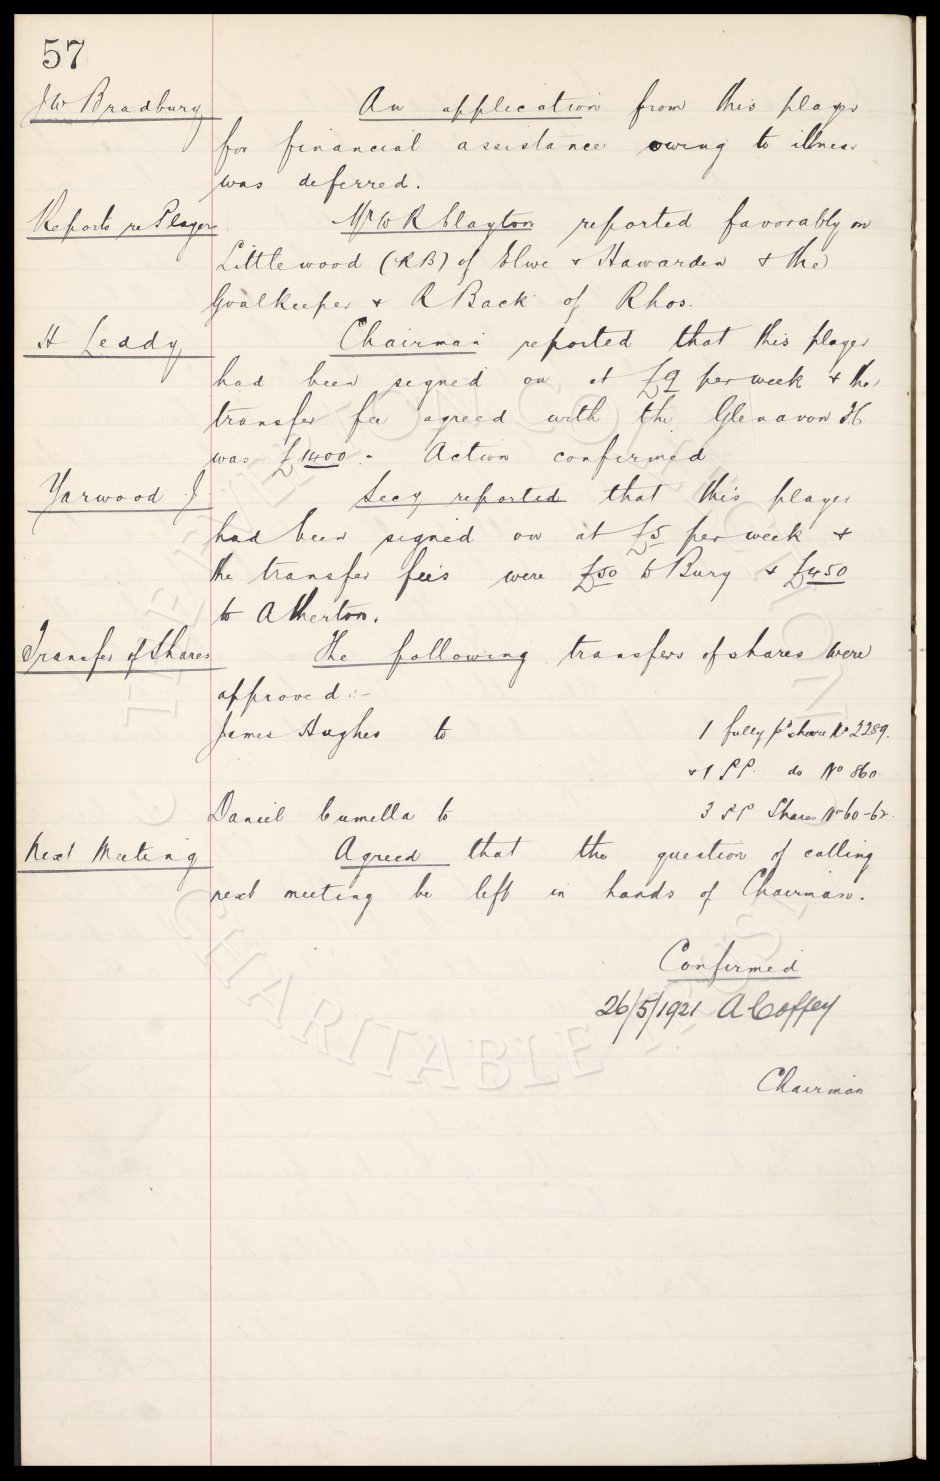 57
J W Bradbury
An application from this player
for financial assistance owing to illness
was deferred.
Reports re Players
Mr W R Clayton reported favorably on
Littlewood (RB) of Elwe & Hawarden & the
Goalkeeper & R Back of Rhos.
H Leddy
Chairman reported that this player
had been signed on at £9 per week & the
transfer fee agreed with the Glenavon
was £1400 :- Action confirmed
Yarwood J
Secy reported that this player
had been signed on at £5 per week &
the transfer fees were £50 to Bury & £450
to Atherton.
Transfer of Shares
The following transfers of shares were
approved :-
James Hughes to 1 fully pd share No 2289.
& 1 P.P. do No 860.
Daniel Cumella to 3 PP Shares No 60-62.
Next Meeting
Agreed that the question of calling
next meeting be left in hands of Chairman.
Confirmed
26/5/1921 A Coffey
Chairman
THE EVERTON COLLECTION
CHARITABLE TRUST